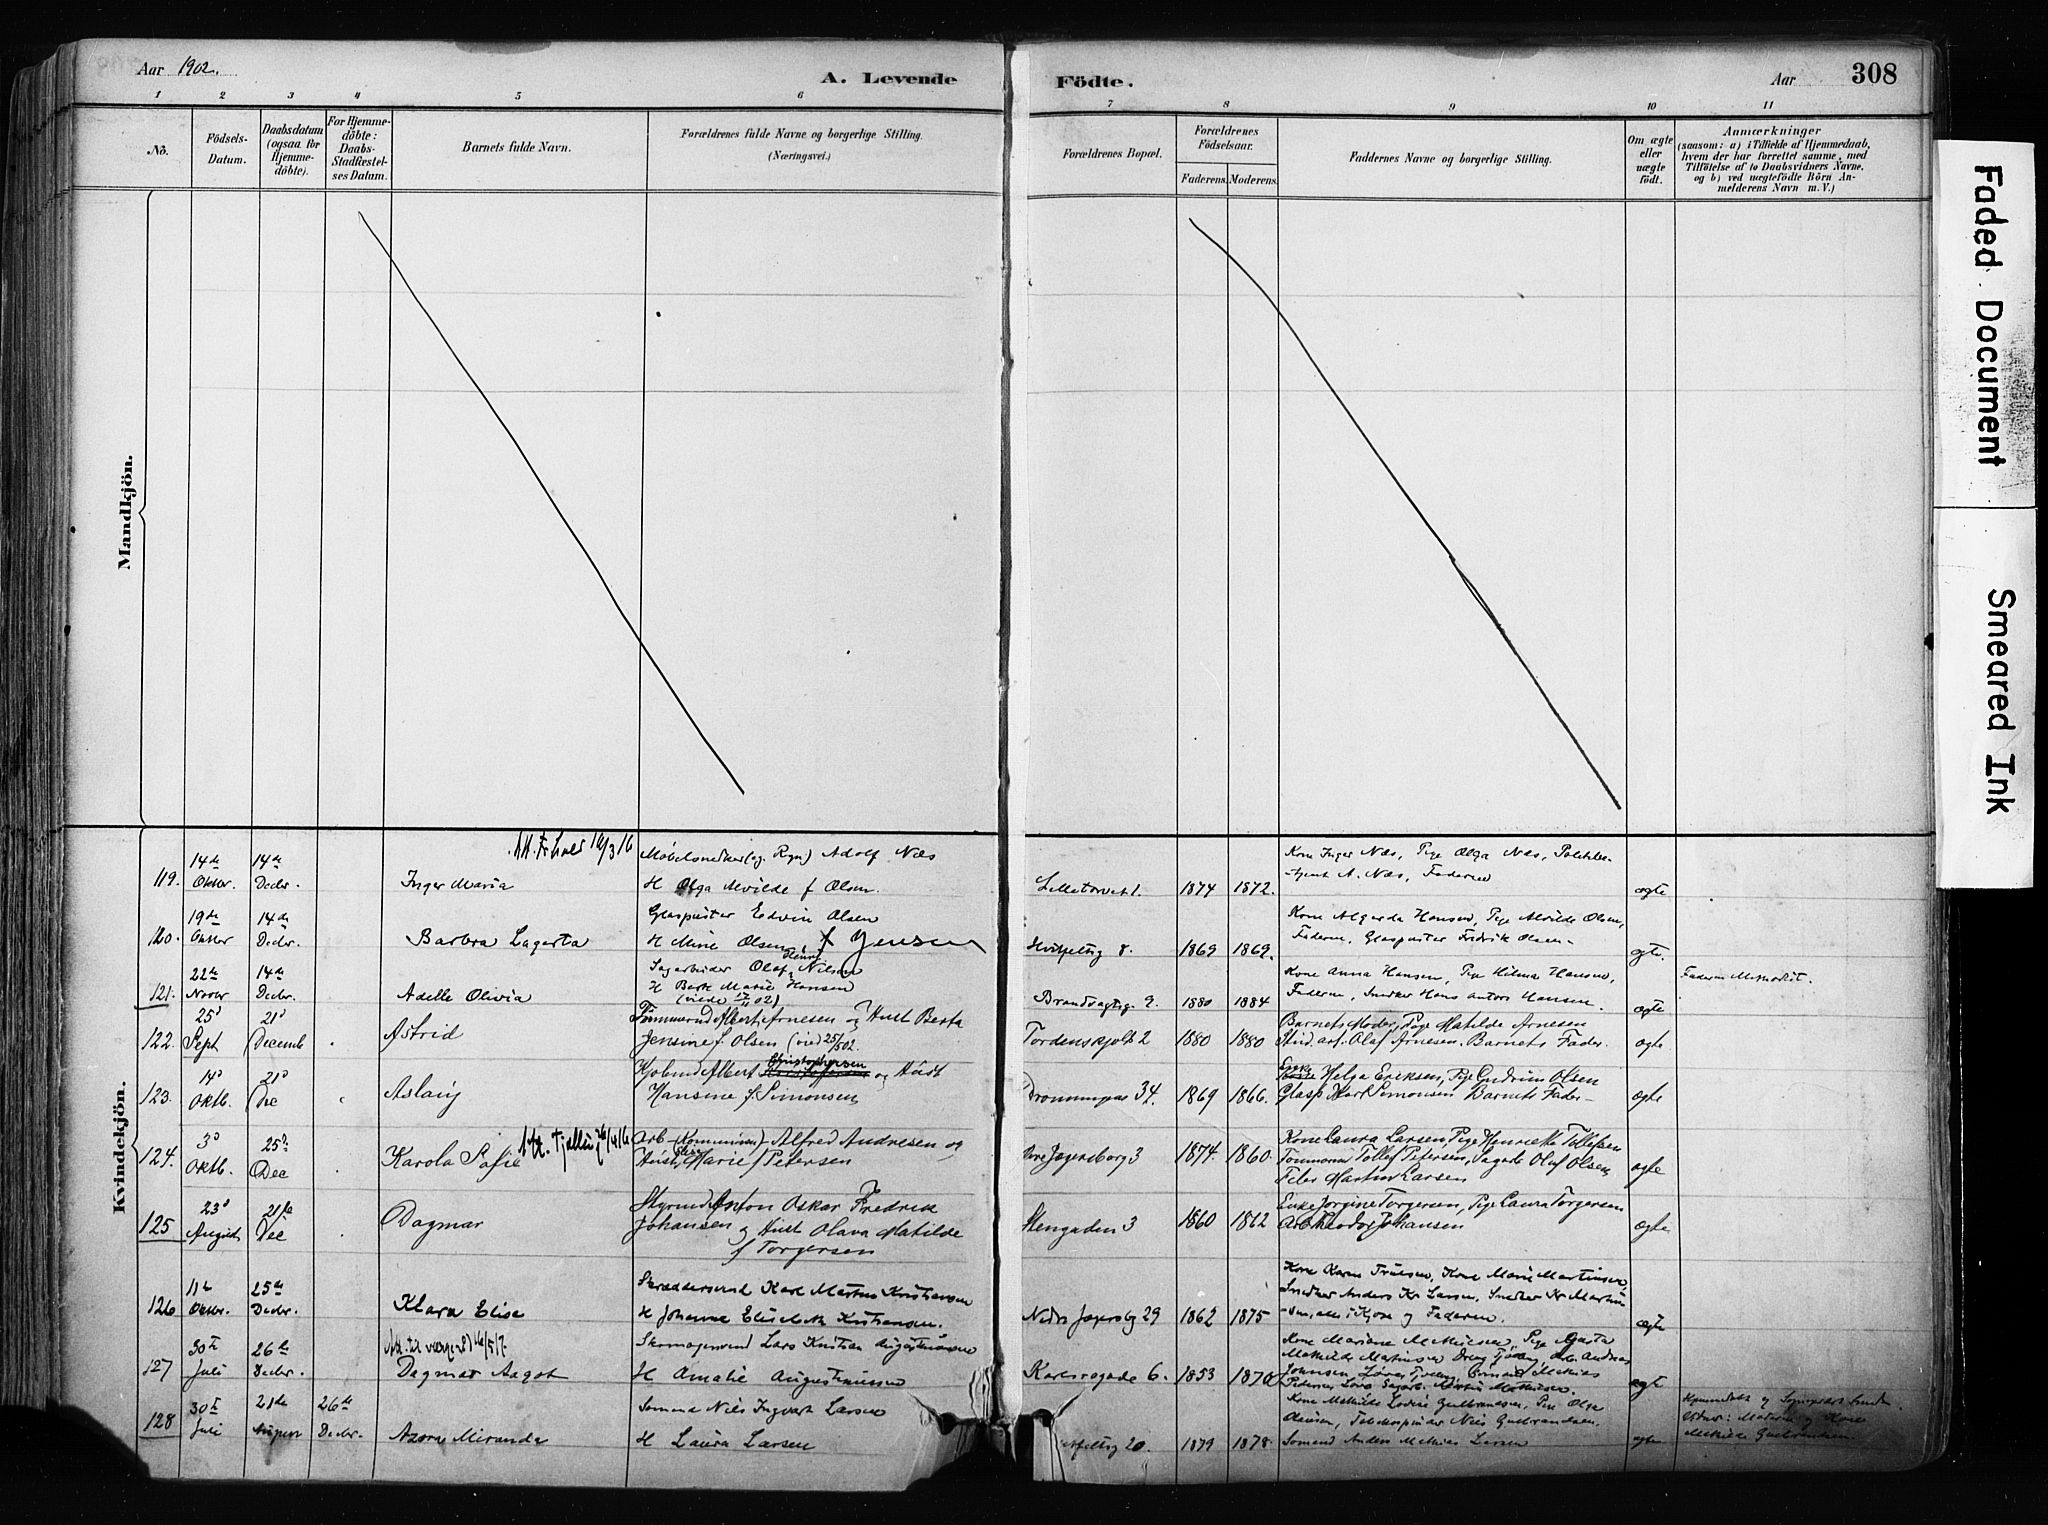 Aar 1902.
A. Levende
Födte.
Aar
308
1 2 3 4 5 6 7 8 9 10 11
No.
Födsels-Datum.
Daabsdatum (ogsaa for Hjemme-döbte).
For Hjemme-döbte: Daabs-Stadfæstel-ses Datum.
Barnets fulde Navn.
Forældrenes fulde Navne og borgerlige Stilling.
(Næringsvei.)
Forældrenes Bopæl.
Forældrenes Födselsaar.
Faderens. Moderens.
Faddernes Navne og borgerlige Stilling.
Om ægte eller uægte födt.
Anmærkninger
(saasom: a) i Tilfælde af Hjemmedaab,
hvem der har forrettet samme, med
Tilföielse af to Daabsvidners Navne,
og b) ved uægtefödte Börn An-
melderens Navn m. V.)
Mandkjön.
Kvindekjön.
119. 14de Oktbr. 14de Decbr. Inger Maria
Møbelsnedker Adolf Næs
H Olga Alvilde f Olsen.
Lilletorvet 1. 1874 1872.
Kone Inger Næs, Pige Olga Næs, Politibe-
-tjent A. Næs, Faderen
ægte
120. 19de Oktbr 14de Decbr. Barbra Lagerta
Glaspuster Edvin Olsen
H Mina Olsen, f Jensen
8. 1869 1869.
Kone Algarda Hansen, Pige Alvilde Olsen,
Faderen, Glaspuster Fredrik Olsen
ægte.
121. 22de Novbr 14de Decbr. Adelle Olivia
Sagarbeider Olaf Nilsen
H Berte Marie Hansen
9. 1880 1884
Kone Anna Hansen, Pige Hilma Hansen,
Faderen, Snedker Hans Anton Hansen.
ægte
Faderen Methodist.
122. 25d Sept 21d Decemb Astrid
Tømmermd Albert Arnesen og Hust Berta
Jensine f. Olsen (vied 25/5 02.
Tordenskjolds 2 1880 1880
Barnets Moder, Pige Matilde Arnesen
Olaf Arnesen. Barnets Fader.
ægte
123. 14d Oktb. 21d Dec Aslaug
Albert Christophersen og Hust
Hansine f. Simonsen
Dronningens 34. 1869 1866.
Enke Helga Eriksen, Pige Gudrun Olsen
Glasp Karl Simonsen Barnets Fader
ægte
124. 3d Oktb. 25d Dec Karola Sofie
Arb (Kommunen) Alfred Andresen og
Hust. Marie f Petersen
Jegersborg 3 1874 1860.
Kone Laura Larsen, Pige Henriette Tollefsen
Tømmerm Tollef Petersen, Sagarb Oluf Olsen,
Martin Larsen
ægte
125 23d August 21de Dec Dagmar
Styrmd Anton Oskar Fredrik
Johansen og Hust Olava Matilde
f Torgersen
Stengaden 3 1860 1862
Enke Jorgine Torgersen, Pige Laura Torgersen
Arb Johansen
ægte
126 11te Oktbr. 25de Decbr. Klara Elise
Skræddersvend Karl Martin Kristiansen
H Johanne Elisabeth Kristiansen.
Nedre Jegersbg 29 1862 1875
Kone Karen Truesen, Kone Marie Martinsen
Snedker Anders Kr Larsen, Snedker Kr Martin
-sen, alle i Kjøse og Faderen.
ægte
127 30te Juli 26de Decbr. Dagmar Aagot
Skomagersvend Lars Kristian Augustinussen
H Amalie Augustinussen
Karlsrogade 6. 1853 1870
Kone Mariane Mathisen, Pige Marta
Mathilde Martinsen
ægte
128 30te Juli 21de August 26de Decbr. Azora Miranda
Sømand Nils Ingvart Larsen
H Laura Larsen
20. 1879 1878.
Kone Mathilde Lovise Gulbrandsen, Pige Olga
Olausen, Nils Gulbrandsen.
Sømand Anders Mathias Larsen
ægte
Mathilde Gulbrandsen.
Faded Document
Smeared Ink